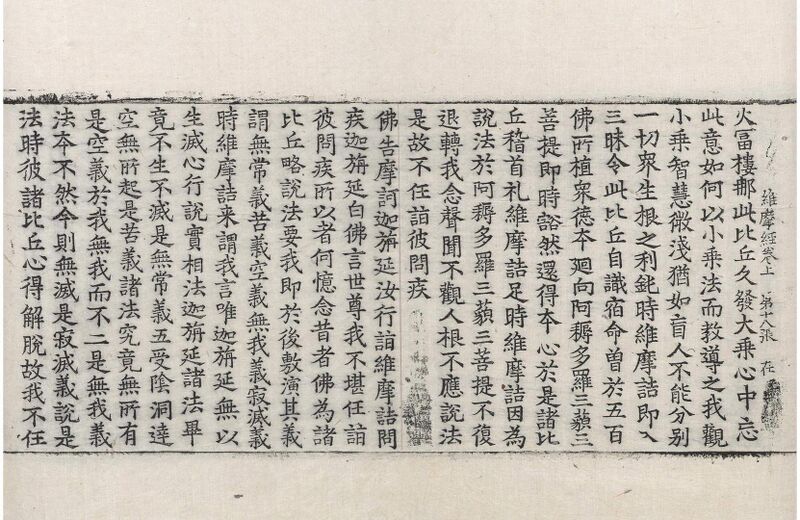 維摩經卷上 第十八張 在
火富樓那此比丘久發大乘心中忘
此意如何以小乘法而教導之我觀
小乘智慧微淺猶如盲人不能分別
一切衆生根之利鈍時維摩詰即入
三昧令此比丘自識宿命曾於五百
佛所植衆德本廻向阿耨多羅三藐三
菩提即時豁然還得本心於是諸比
丘稽首礼維摩詰足時維摩詰因為
說法於阿耨多羅三藐三菩提不復
退轉我念聲聞不觀人根不應說法
是故不任詣彼問疾
佛告摩訶迦旃延汝行詣維摩詰問
疾迦旃延白佛言世尊我不堪任詣
彼問疾所以者何憶念昔者佛為諸
比丘略說法要我即於後敷演其義
謂無常義苦義空義無我義寂滅義
時維摩詰来謂我言唯迦旃延無以
生滅心行說實相法迦旃延諸法畢
竟不生不滅是無常義五受陰洞達
空無所起是苦義諸法究竟無所有
是空義於我無我而不二是無我義
法本不然今則無滅是寂滅義說是
法時彼諸比丘心得解脫故我不任